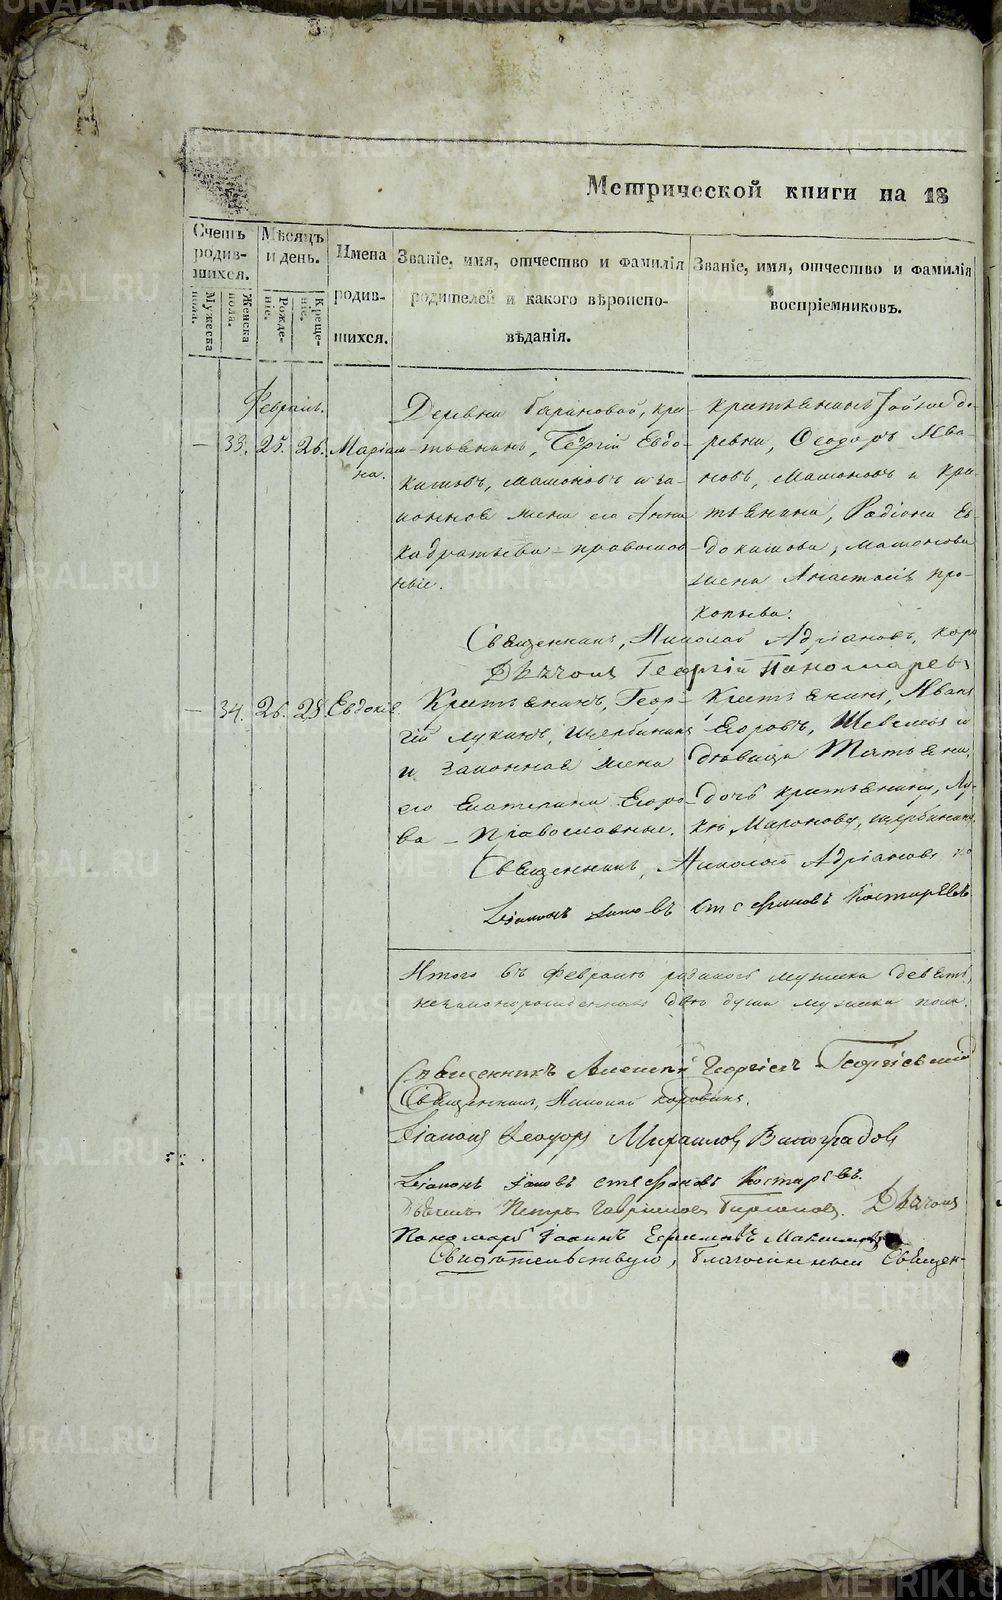 Метрической книги на 18
Счетъ родив-шихся.
Мужеска пола.
Женска пола.
Мѣсяцъ и день.
Рожде-ніе.
Креще-ніе.
Имена родив-шихся.
Званіе, имя, отчество и фамилія родителей и какого вѣроиспо-вѣданія.
Званіе, имя, отчество и фамилія воспріемниковъ.
Февраль.
— 33. 25. 26. Маріам-на.
Деревни кре-
стьянинъ, Георгій Евдо-
кимовъ, и за-
конная жена его Анна
православ-
ные.
крестьянинъ той же де-
ревни, Ѳеодоръ Ива-
новъ, и кре-
стьянина, Родіона Ев-
докимова,
жена Анастасія Про-
копьева.
Священникъ, Николай Адріановъ,
Дьячокъ Георгій Пономаревъ
— 34. 26. 28. Евдокія.
Крестьянинъ, Геор-
гій Лукинъ, Щербининъ
и законная жена
его Екатерина Егоро-
ва – православные.
Крестьянинъ, Иванъ
Егоровъ, и
дѣвица Татьяна,
дочь крестьянина, Лу-
ки Миронова, Щербинина
Священникъ, Николай Адріановъ
Діаконъ Іаковъ Стефановъ Костаревъ
Итого въ Февралѣ родилось мужеска девять,
незаконнорожденныхъ двѣ души мужеска пола.
Священникъ Алексій Георгіевъ Георгіевскій
Священникъ, Николай Коровинъ.
Діаконъ Ѳеодоръ Михайловъ Виноградовъ
Діаконъ Іаковъ Стефановъ Костаревъ.
Дьячекъ Петръ Гавриловъ Дьячокъ
Пономарь Іоаннъ
Свидѣтельствую, Благочинный Священ-
METRIKI.GASO-URAL.RU